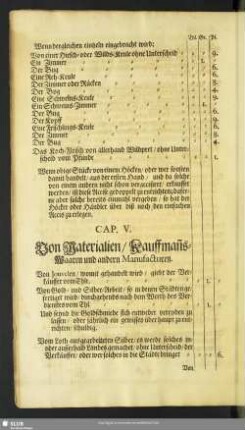 Thl. Gr. Pf.
Wenn dergleichen eintzeln eingebracht wird:
Von einer Hirsch- oder Wilds-Keule ohne Unterscheid
Ein Zimmer
Der Bug
Eine Reh-Keule
Der Zimmer oder Rücken
Der Bug
Eine Schweins-Keule
Ein Schweins-Zimmer
Der Bug
Der Kopff
Eine Frischlings-Keule
Der Zimmer
Der Bug
Das Koch-Fleisch von allerhand Wildpret / ohne Unterscheid vom Pfunde
Wenn obige Stücke von einem Höcken / oder wer sonsten
damit handelt / aus der ersten Hand / und da solche
von einem andern nicht schon veracciset / erkauffet
werden / ist diese Accis gedoppelt zu entrichten,
ne aber solche bereits einmahl vergeben / so hat der
Höcke oder Händler über diß noch den einfachen
Accis zu erlegen.
CAP. V.
Von Materialien / Kauffmanns-
Waaren und andern Manufacturen.
Von Jouvelen / womit gehandelt wird / giebt der Ver-
käuffer vom Thlr.
Von Gold- und Silber-Arbeit / so in denen Städten ge-
fertiget wird / durchgehends nach dem Werth des Ver-
dienstes vom Thl.
Und seynd die Goldschmiede sich entweder vereyden zu
lassen / oder jährlich ein gewisses überhaupt zu ent-
richten / schuldig.
Vom Loth ausgearbeiteten Silber / es werde solches in-
oder ausserhalb Landes gemachet / ohne Unterscheid der
Verkäuffer / oder wer solches in die Städte bringet
Von